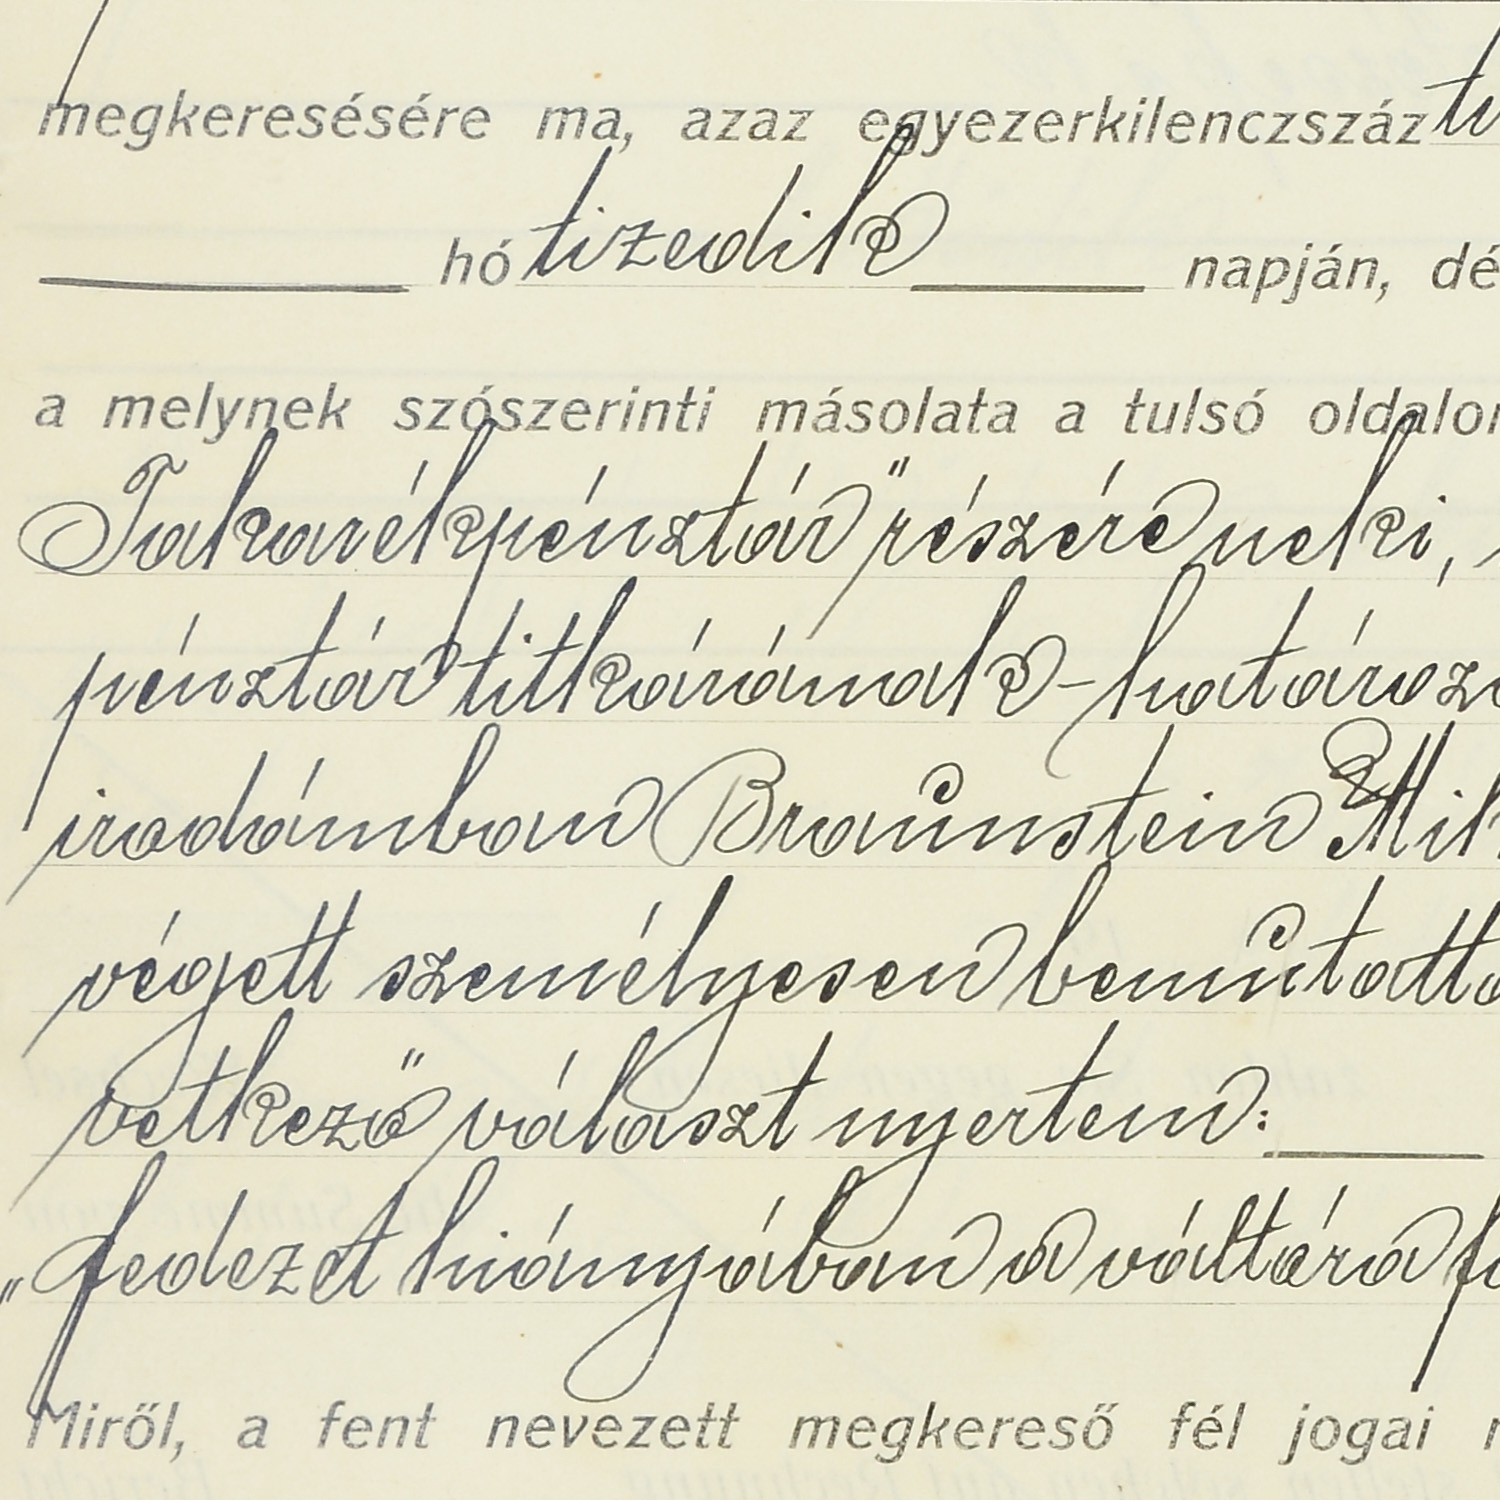 megkeresésére ma, azaz egyezerkilenczszáz
hó tizedik napján, dé
a melynek szószerinti másolata a tulsó oldalon
Takarékpénztár" részére neki,
pénztár titkárának - határoz
irodámban Braunstein Mik
végett személyesen bemutatta
vetkező választ nyertem:
„fedezet hiányában a váltóra f
Miről, a fent nevezett megkereső fél jogai